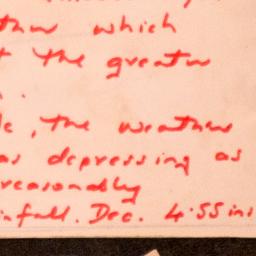 which
t the greater
, the weather
as depressing as
reasonably
infall. Dec. 4.55 ins